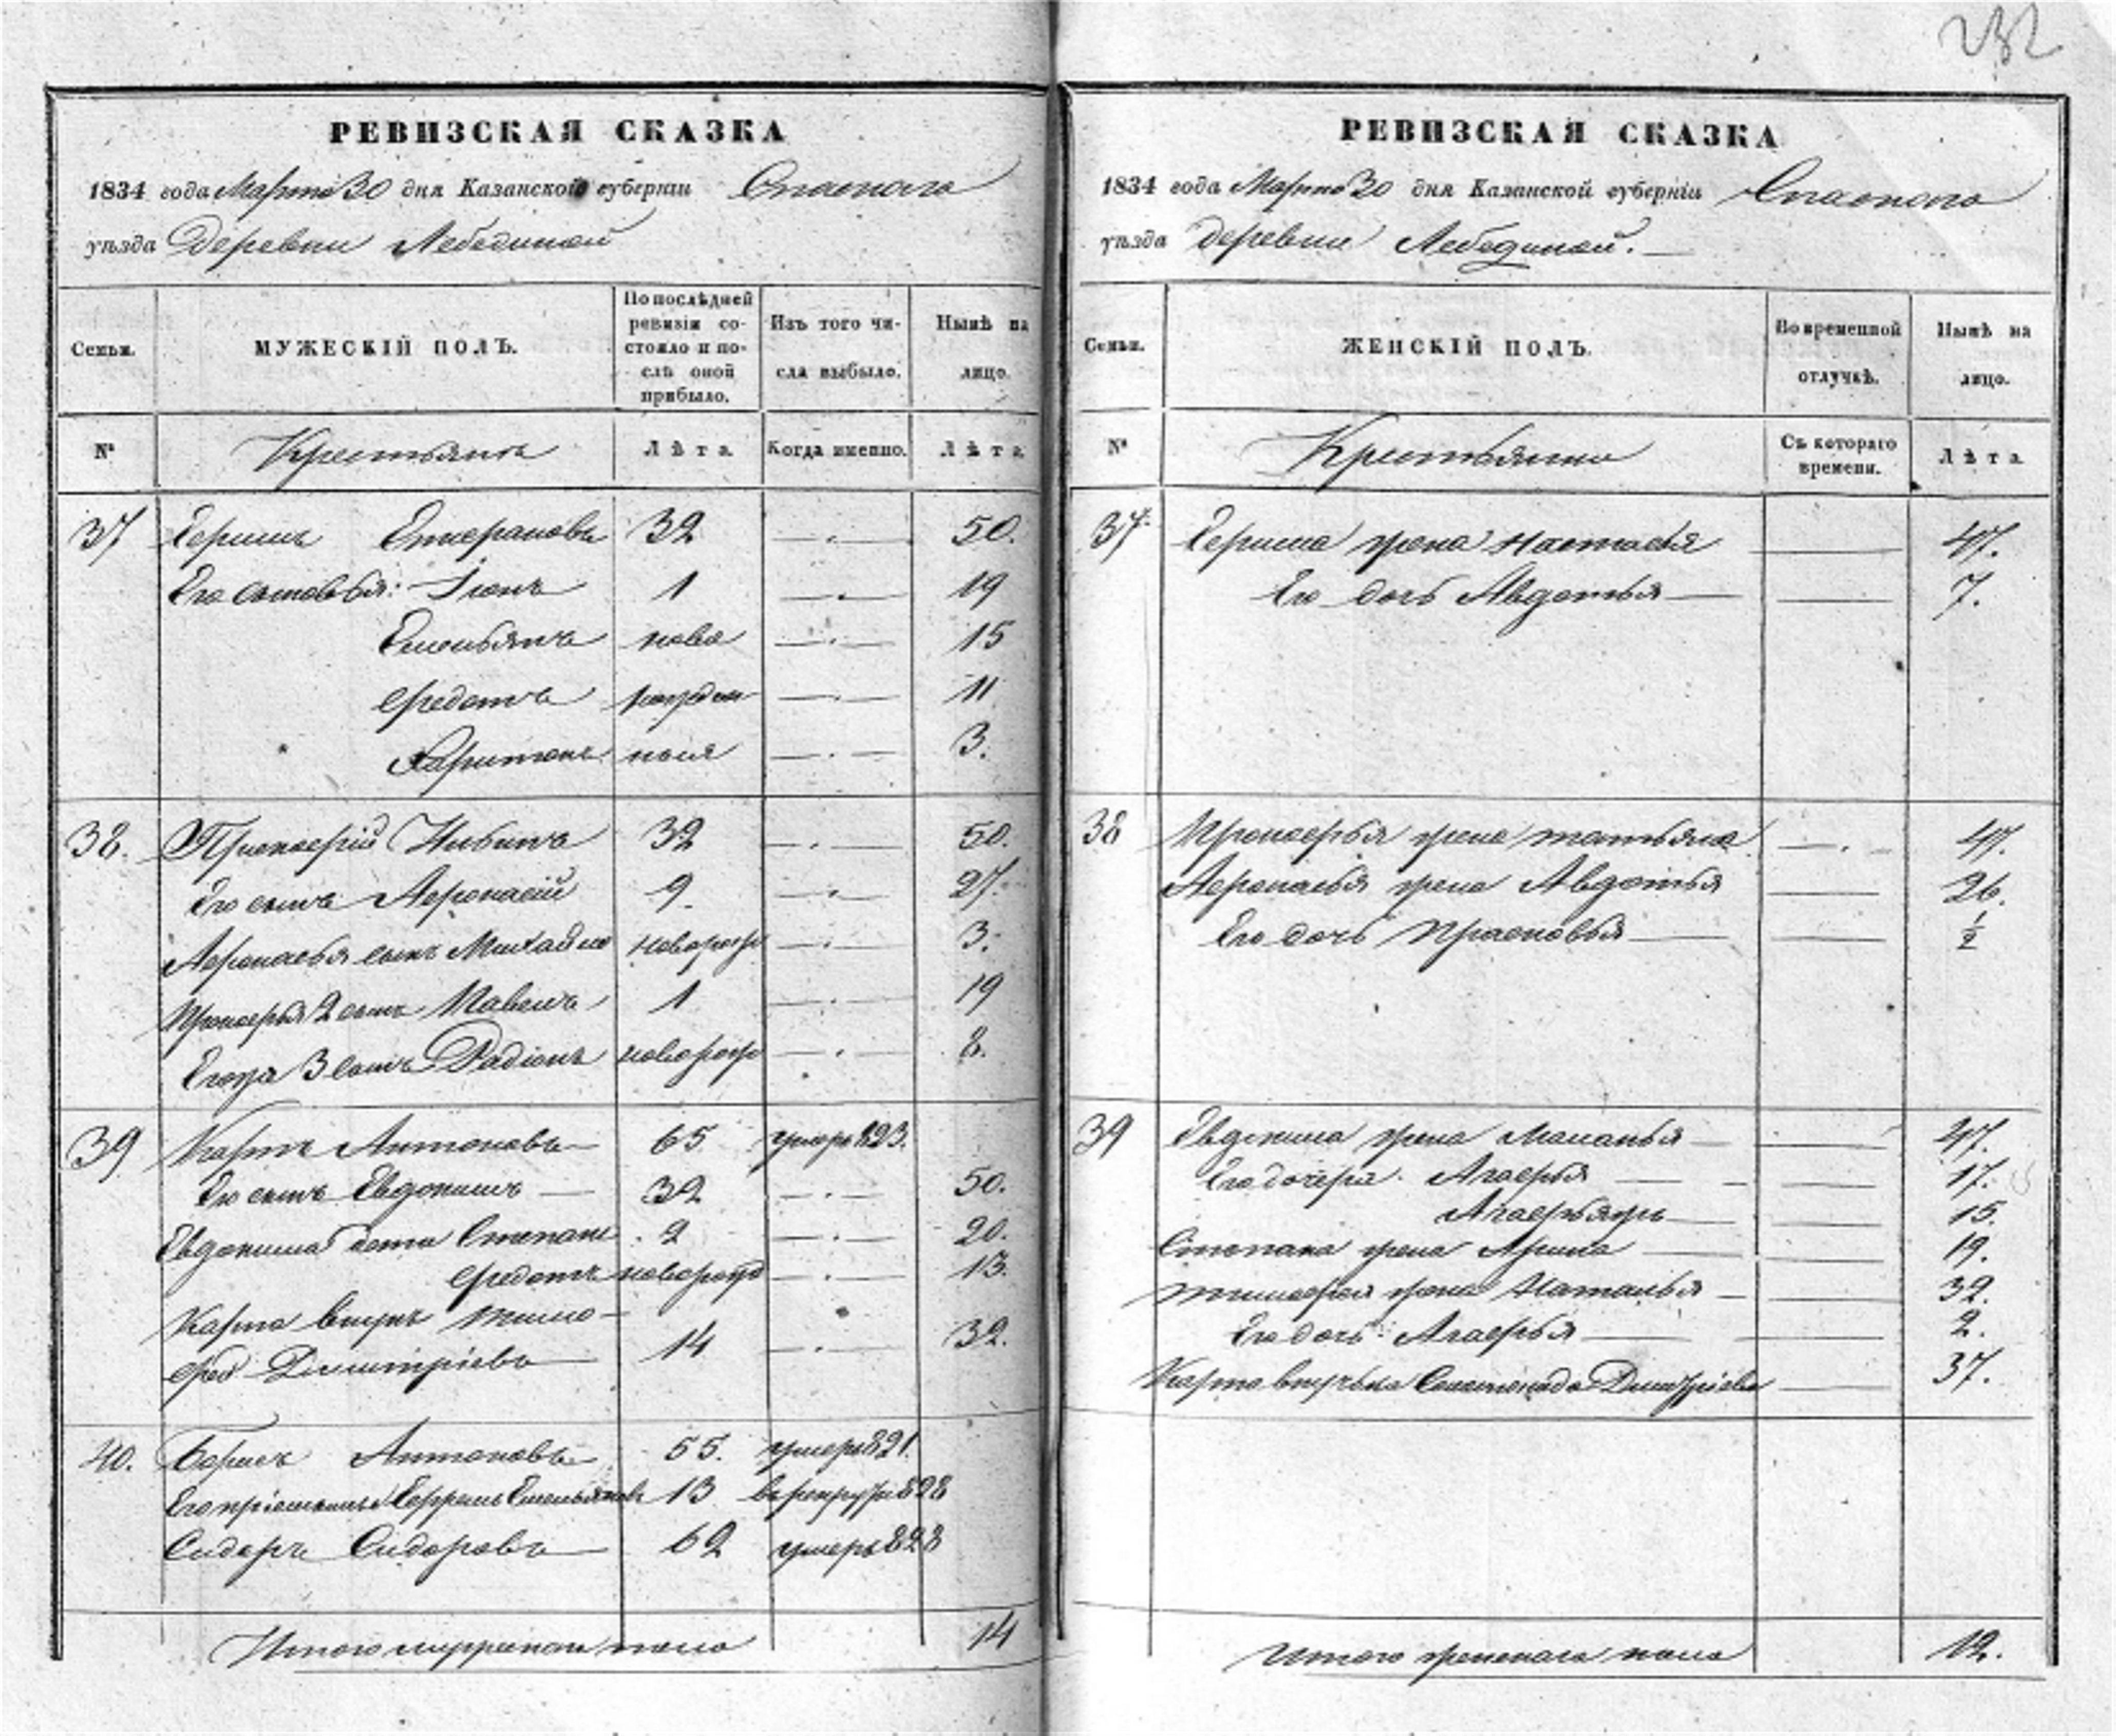 232
РЕВИЗСКАЯ СКАЗКА
1834 года Марта 30 дня Казанской губерніи Спаскаго
уѣзда Деревни Лебединой
Семьи. МУЖЕСКІЙ ПОЛЪ. По послѣдней ревизіи состояло и послѣ оной прибыло. Изъ того числа выбыло. Нынѣ на лицо.
№ Крестьянъ Лѣта Когда именно. Лѣта
37 Ермилъ 32 —.— 50.
Его сыновья: 1 —.— 19
Емельянъ ново —.— 15
Федотъ —.— 11
Харитонъ —.— 3.
38. Прокофій 32 —.— 50.
Его сынъ Афонасій 9. —.— 27.
Афонасья сынъ Михайло новорож —.— 3.
Прокофья 2 сынъ Павелъ 1 —.— 19
Егожъ 3 сынъ Радіонъ новорож —.— 8.
39 Карпъ Антоновъ 65 умеръ 823.
Его сынъ Евдокимъ — 32 —.— 50.
Евдокима дети Степанъ 2 —.— 20.
Федотъ новорож —.— 13.
Карпа внукъ Тимо-
фей Димитріевъ 14 —.— 32.
40. Борисъ Антоновъ 55. умеръ 821.
Его Емельяновъ 13 въ рекруты 828
Сидоръ Сидоровъ 62 умеръ 828
Итого мужеска пола 14
РЕВИЗСКАЯ СКАЗКА
1834 года Марта 30 дня Казанской губерніи Спаскаго
уѣзда деревни Лебединой.
Семьи. ЖЕНСКІЙ ПОЛЪ. Во временной отлучкѣ. Нынѣ на лицо.
№ Крестьянки Съ котораго времени. Лѣта
37. Ермила жена Настасья — 47.
Его дочь Авдотья — 7.
38 Прокофья жена Татьяна —.— 47.
Афонасья жена Авдотья — 26.
Его дочь Прасковья — ½
39 Евдокима жена Маланья — 47.
Его дочери Агафья — 17.
— 15.
Степана жена Арина — 19.
Тимофея жена Наталья — 32.
Его дочь Агафья — 2.
Карпа внучька Димитріева — 37.
Итого женскаго пола 12.